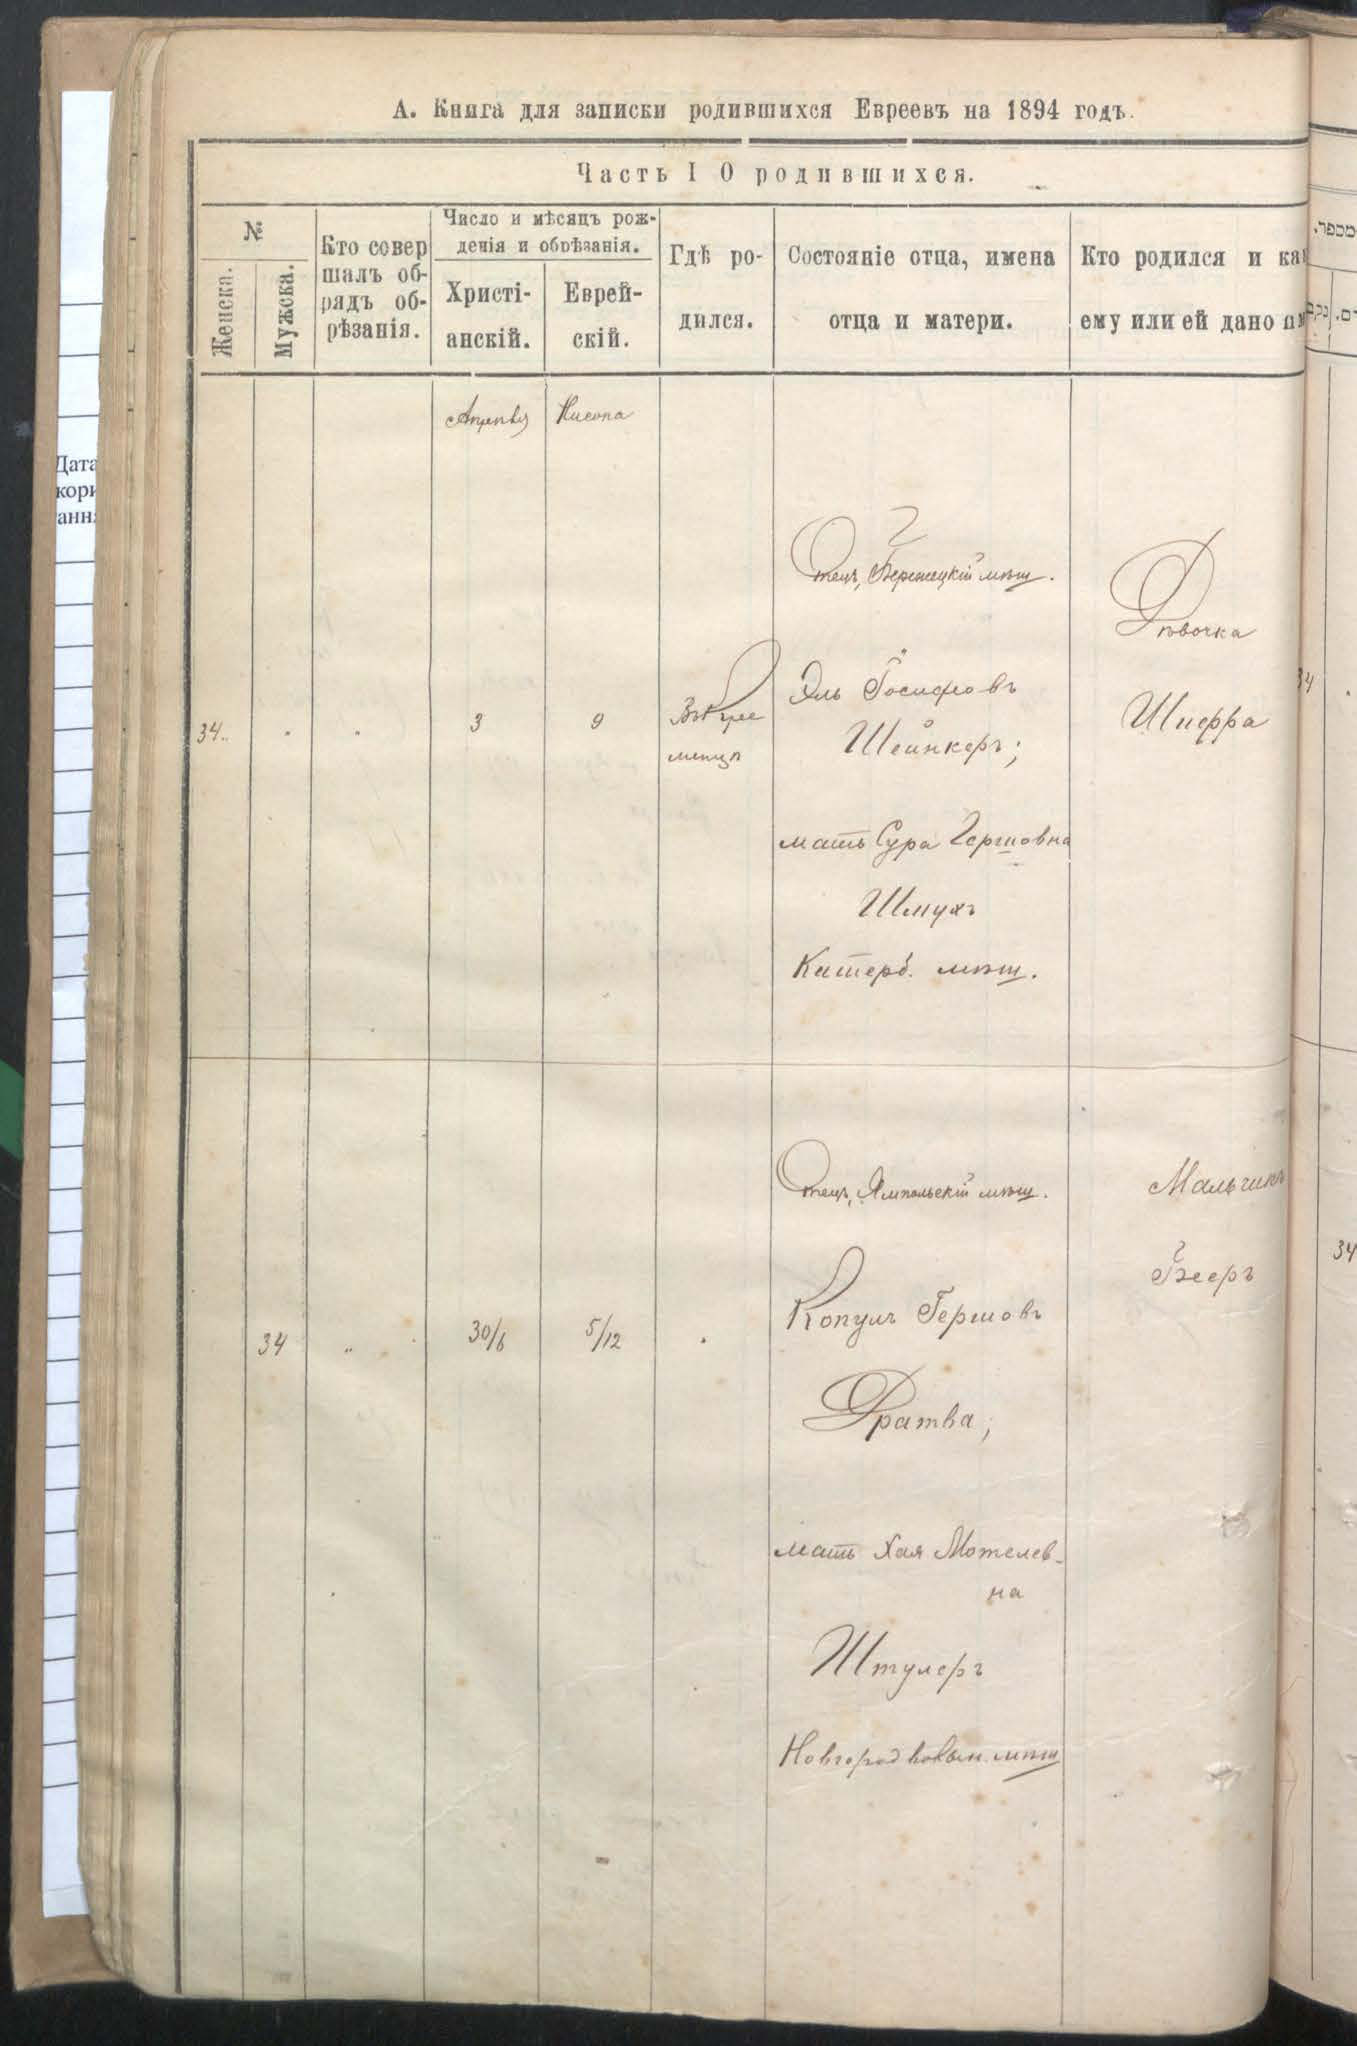 А. Книга для записки родившихся Евреевъ на 1894 годъ.
Часть I О родившихся.
№
Женска.
Мужска.
Кто совер
шалъ об-
рядъ об-
рѣзанія.
Число и мѣсяцъ рож-
денія и обрѣзанія.
Христі-
анскій.
Еврей-
скій.
Гдѣ ро-
дился.
Состояніе отца, имена
отца и матери.
Кто родился и ка
ему или ей дано им
מספר.
Дата
кори
анн
Апрѣль
Нисона
34.
3
9
Въ Кре
менцѣ
Отецъ, Бережецкій мѣщ.
Эль Іосифовъ
Шейнкеръ;
мать Сура Гершовна
Шмукъ
Катерб. мѣщ.
Дѣвочка
Шифра
34
34
30/6
5/12
Отецъ, Ямпольскій мѣщ.
Копулъ Гершовъ
Дратва;
мать Хая Мотелев-
на
Штулеръ
Новгородволын. мѣщ
Мальчикъ
34